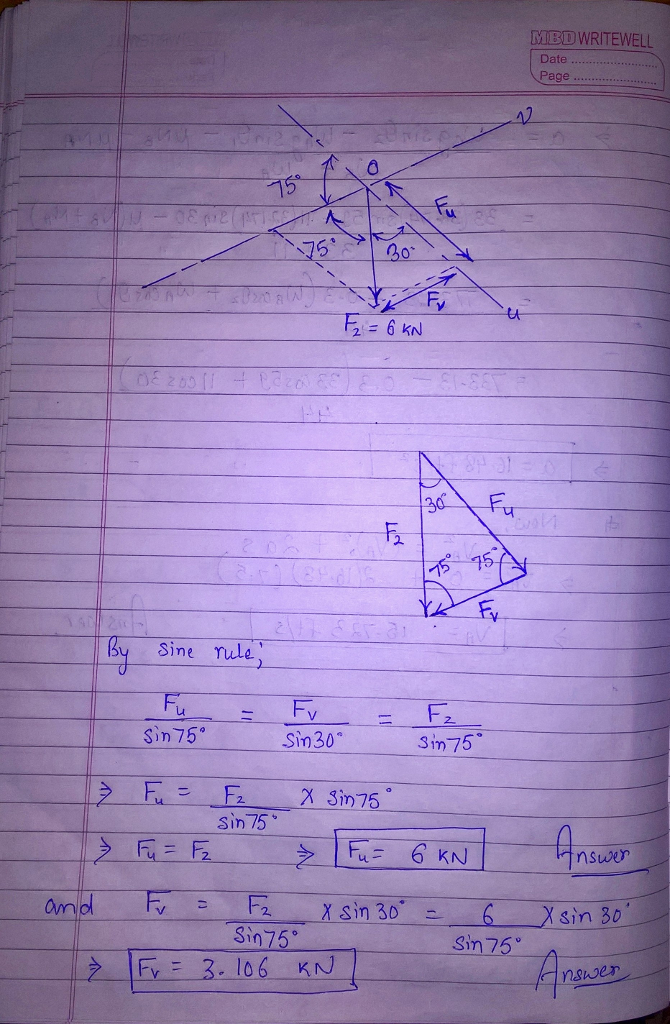 MBD WRITEWELL
Date
Page
v
O
75°
Fu
75°
30°
Fv
u
F2 = 6 KN
30°
Fu
F2
75°
75°
Fv
By sine rule;
Fu / sin75° = Fv / sin30° = F2 / sin75°
⇒ Fu = F2 / sin75° X sin75°
⇒ Fu = F2 ⇒ Fu = 6 KN Answer
and Fv = F2 / sin75° X sin 30° = 6 / sin75° X sin 30°
⇒ Fv = 3.106 KN Answer